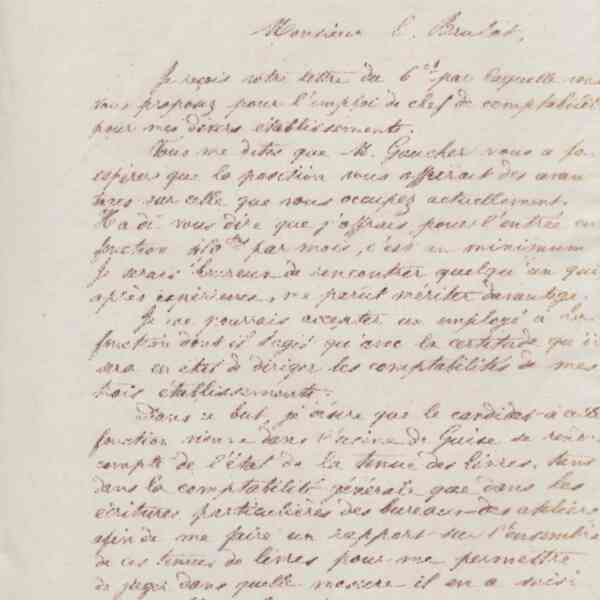 Monsieur E. Brulat,
Je reçois votre lettre du 6 ct par laquelle vous
vous proposez pour l'emploi de chef de comptabilité
pour mes divers établissements.
Vous me dites que M. Gaucher vous a fait
espérer que la position vous offrirait des avan
tages sur celle que vous occupez actuellement.
Il a dû vous dire que j'offrais pour l'entrée en
fonction par mois, c'est un minimum
Je serais heureux de rencontrer quelqu'un qui
après expérience, me parut mériter davantage.
Je ne pourrais accepter un employé à la
fonction dont il s'agit qu'avec la certitude qu'il
sera en état de diriger les comptabilités de mes
trois établissements.
Dans ce but, je désire que le candidat à cette
fonction vienne dans l'usine de Guise se rendre
compte de l'état de la tenue des livres, tant
dans la comptabilité générale que dans les
écritures particulières des bureaux des ateliers
afin de me faire un rapport sur l'ensemble
de ces tenues de livres pour me permettre
de juger dans quelle mesure il en a saisi